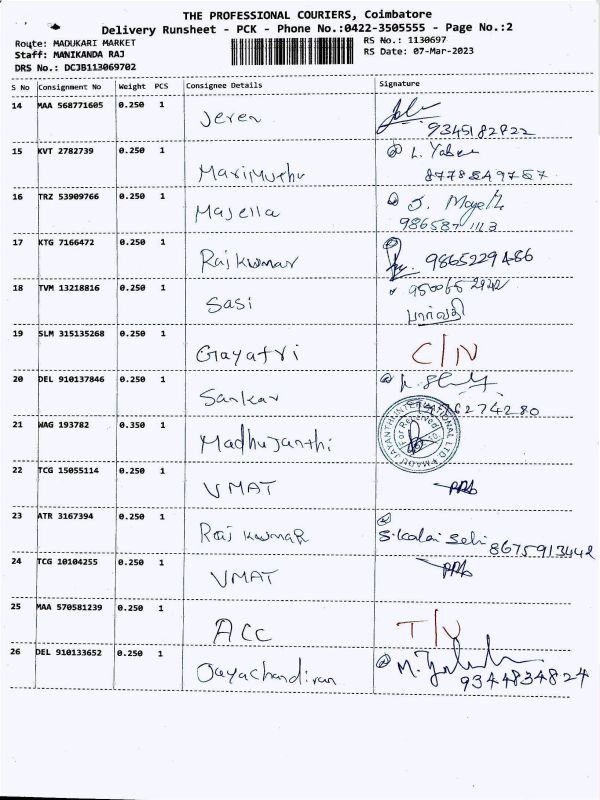 THE PROFESSIONAL COURIERS, Coimbatore
Delivery Runsheet - PCK - Phone No.:0422-3505555 - Page No.:2
Route: MADUKARI MARKET RS No.: 1130697
Staff: MANIKANDA RAJ RS Date: 07-Mar-2023
DRS No.: DCJB113069702
S No Consignment No Weight PCS Consignee Details Signature
14 MAA 568771605 0.250 1 Jeren
9345182822
15 KVT 2782739 0.250 1 Marimuthu
16 TRZ 53909766 0.250 1 Majella
17 KTG 7166472 0.250 1 Rajkumar 9865229486
18 TVM 13218816 0.250 1 Sasi
பார்வதி
19 SLM 315135268 0.250 1 Gayatri C/N
20 DEL 910137846 0.250 1 Sankar
21 WAG 193782 0.350 1 Madhujanthi
22 TCG 15055114 0.250 1 VMAT
23 ATR 3167394 0.250 1 Rajkumar S.Kalai Selvi
8675913442
24 TCG 10104255 0.250 1 VMAT
25 MAA 570581239 0.250 1 ACC T/V
26 DEL 910133652 0.250 1 Jayachandiran
9344834824